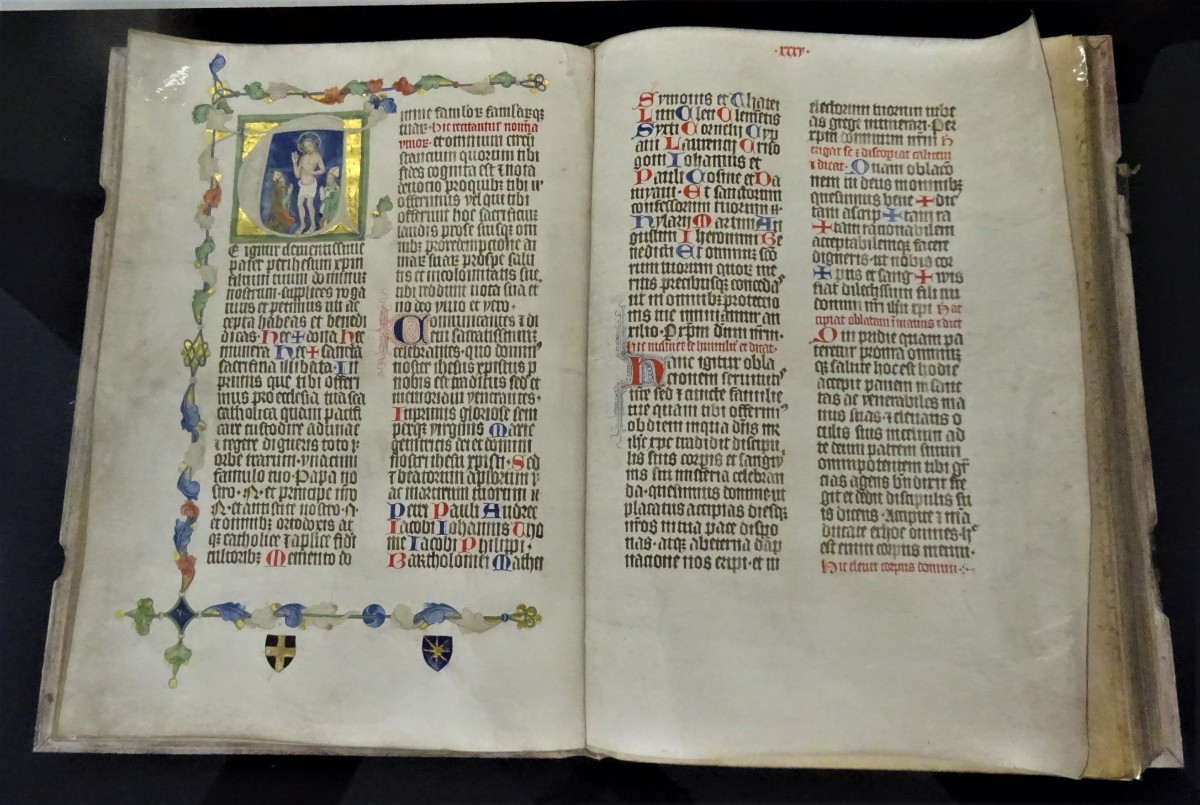 E igitur clementissime
pater per ihesum xpm
filium tuum dominum
nostrum supplices roga
mus et petimus uti ac
cepta habeas et benedi
cas. Hec + dona hec
munera Hec + sancta
sacrificia illibata. In
primis que tibi offeri
mus pro ecclesia tua sca
catholica quam pacifi
care custodire adunare
et regere digneris toto
orbe terrarum. vna cum
famulo tuo Papa no
stro. N. et principe nro
N. et antistite nostro. N.
et omnibz ortodoxis at
qz catholice et aplice fidei
cultoribz Memento do
mine famlor famlarqz
tuar. hic recitantur nomina
viuor. et omnium circu
stancium quorum tibi
fides cognita est et nota
deuotio pro quibz tibi
offerimus vel qui tibi
offerunt hoc sacrificiu
laudis pro se suisqz om
nibz pro redempcione ai
mar suar pro spe salu
tis et incolomitatis sue
tibi reddunt uota sua et
no deo viuo et vero.
Comunicantes et di
em sacratissimum
celebrantes. quo domin9
noster ihesus xpistus p
nobis est traditus sed et
memoriam venerantes.
Inprimis gloriose sem
perqz virginis Marie
genitricis dei et domini
nostri ihesu xpisti. Sed
et beatorum aplorum
ac martirum tuorum
Petri Pauli Andree
Iacobi Iohannis Tho
me Iacobi Philippi
Bartholomei Mathei
.xxxv.
Symonis et Thatei
Lini Cleti Clementis
Syxti Cornelii Cyp
ani Laurencii Criso
goni Iohannis et
Pauli Cosme et Da
miani. Et sanctorum
confessorum tuorum
Hylarii Martini Au
gustini Iheronimi Be
nedicti Et omnium sco
rum tuorum quor me
ritis precibusque conceda
ut in omnibz protectio
nis tue muniamur au
xilio. P xpm dnm nrm.
hic inclinet se humilit et dicat.
Hanc igitur obla
tionem seruitutis
nre sed et cuncte familie
tue quam tibi offerim9
ob diem in qua dns nr
ihc xpc tradidit discipu
lis suis corpis et sangui
nis sui misteria celebran
da. quesumus domine ut
placatus accipias diesqz
nros in tua pace dispo
nas. atqz ab eterna dap
natione nos eripi. et in
electorum tuorum iube
as grege numerari. Per
xpm dominum nrm
erigat se et discoperiat calicem
et dicat. Quam oblaco
nem tu deus in omnibz
quesumus bene + dic
tam ascrip + tam ra
+ tam racionabilem
acceptabilemqz facere
digneris. ut nobis cor
+ pus et sang + wis
fiat dilectissimi filii tui
domini nri ihu xpi Hic ac
cipiat oblatam in manus et dicit
Qui pridie quam pa
teretur pro nra omniumqz
qz salute hoc est hodie
accepit panem in sanc
tas ac venerabiles ma
nus suas. et eleuatis o
culis suis in celum ad
te deum patrem suum
omnipotentem tibi gr
cias agens bndixit fre
git et dedit discipulis su
is dicens. Accipite et ma
ducate ex hoc omnes. hc
est enim corpus meum.
Hic eleuet corpus domini